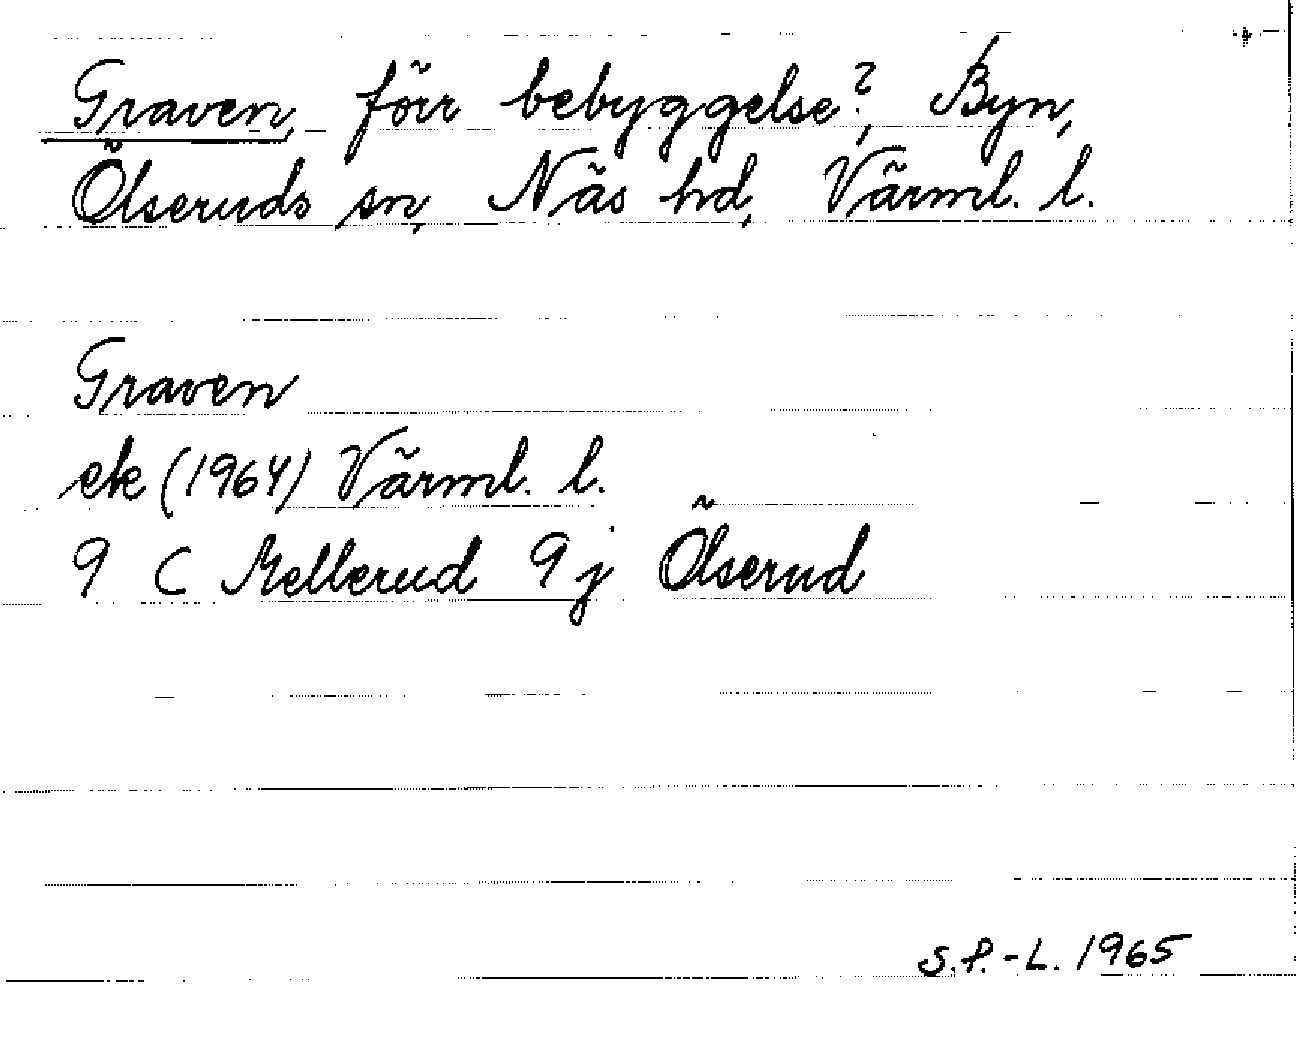 Graven, förr bebyggelse?, Byn,
Ölseruds sn, Näs hd, Värml. l.
Graven
ek (1964) Värml. l.
9 C Mellerud 9 j Ölserud
S.P.-L. 1965